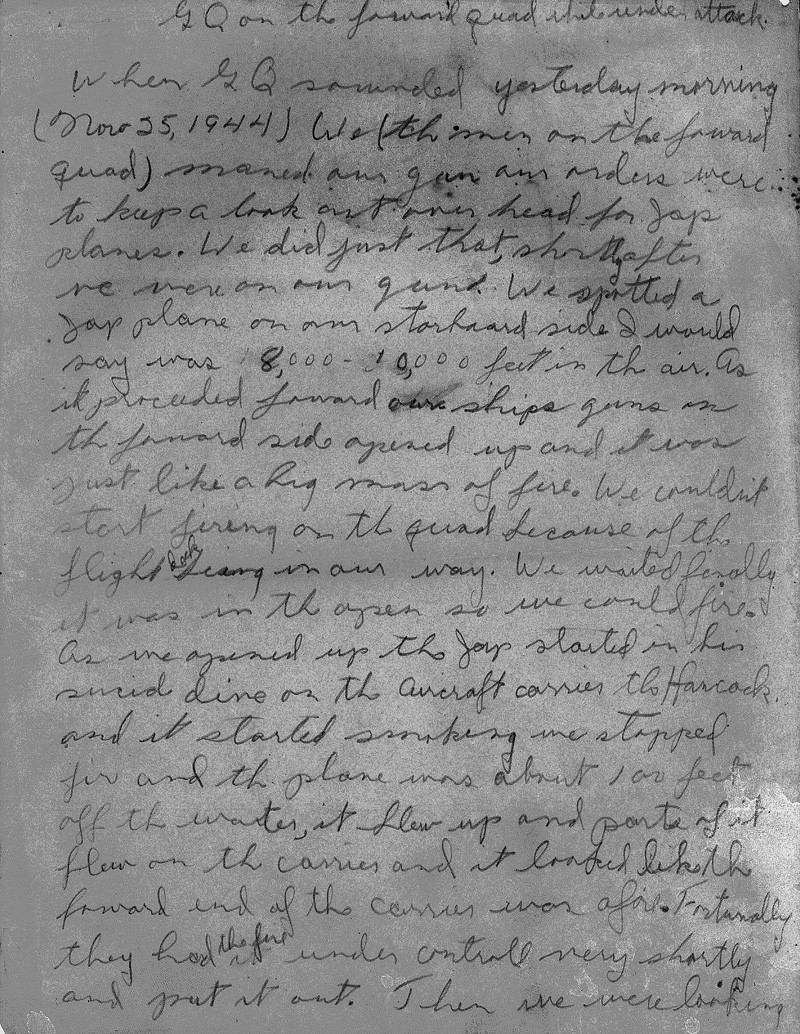 G Q on the forward quad while under attack.
When G Q sounded yesterday morning
(Nov 25, 1944) We (th men on the foward
quad) maned our gun our orders were
to keep a look out over head for Jap
planes. We did just that, shortly after
we were on our guns. We spotted a
Jap plane on our starboard side I would
say was 8,000 - 10,000 feet in th air. As
it proceeded foward our ships guns on
th foward side opened up and it was
just like a big mass of fire. We couldn't
start firing on th quad because of the
flight deck being in our way. We waited finally
it was in th open so we could fire.
As we opened up the Jap started in his
suicid dive on th Aircraft carrier the Hancock.
and it started smoking we stopped
fir and th plane was about 100 feet
off th water, it flew up and parts of it
flew on th carrier and it looked lik th
foward end of the carrier was afire. Fortunally
they had the fire under controll very shortly
and put it out. Then we were looking